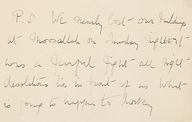 P.S. We nearly lost our buildings
at Moorsallah on Sunday night
was a fearful fight all night
desolation lies in front of us What
is going to happen to